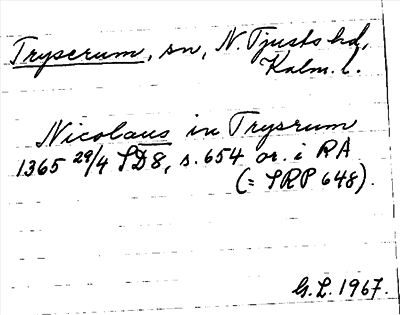 Tryserum, sn, N. Tjusts hd,
Kalm. l.
Nicolaus in Trysrum
1365 29/4 SD8, s. 654 or. i RA
(= SRP 648).
G.L. 1967.